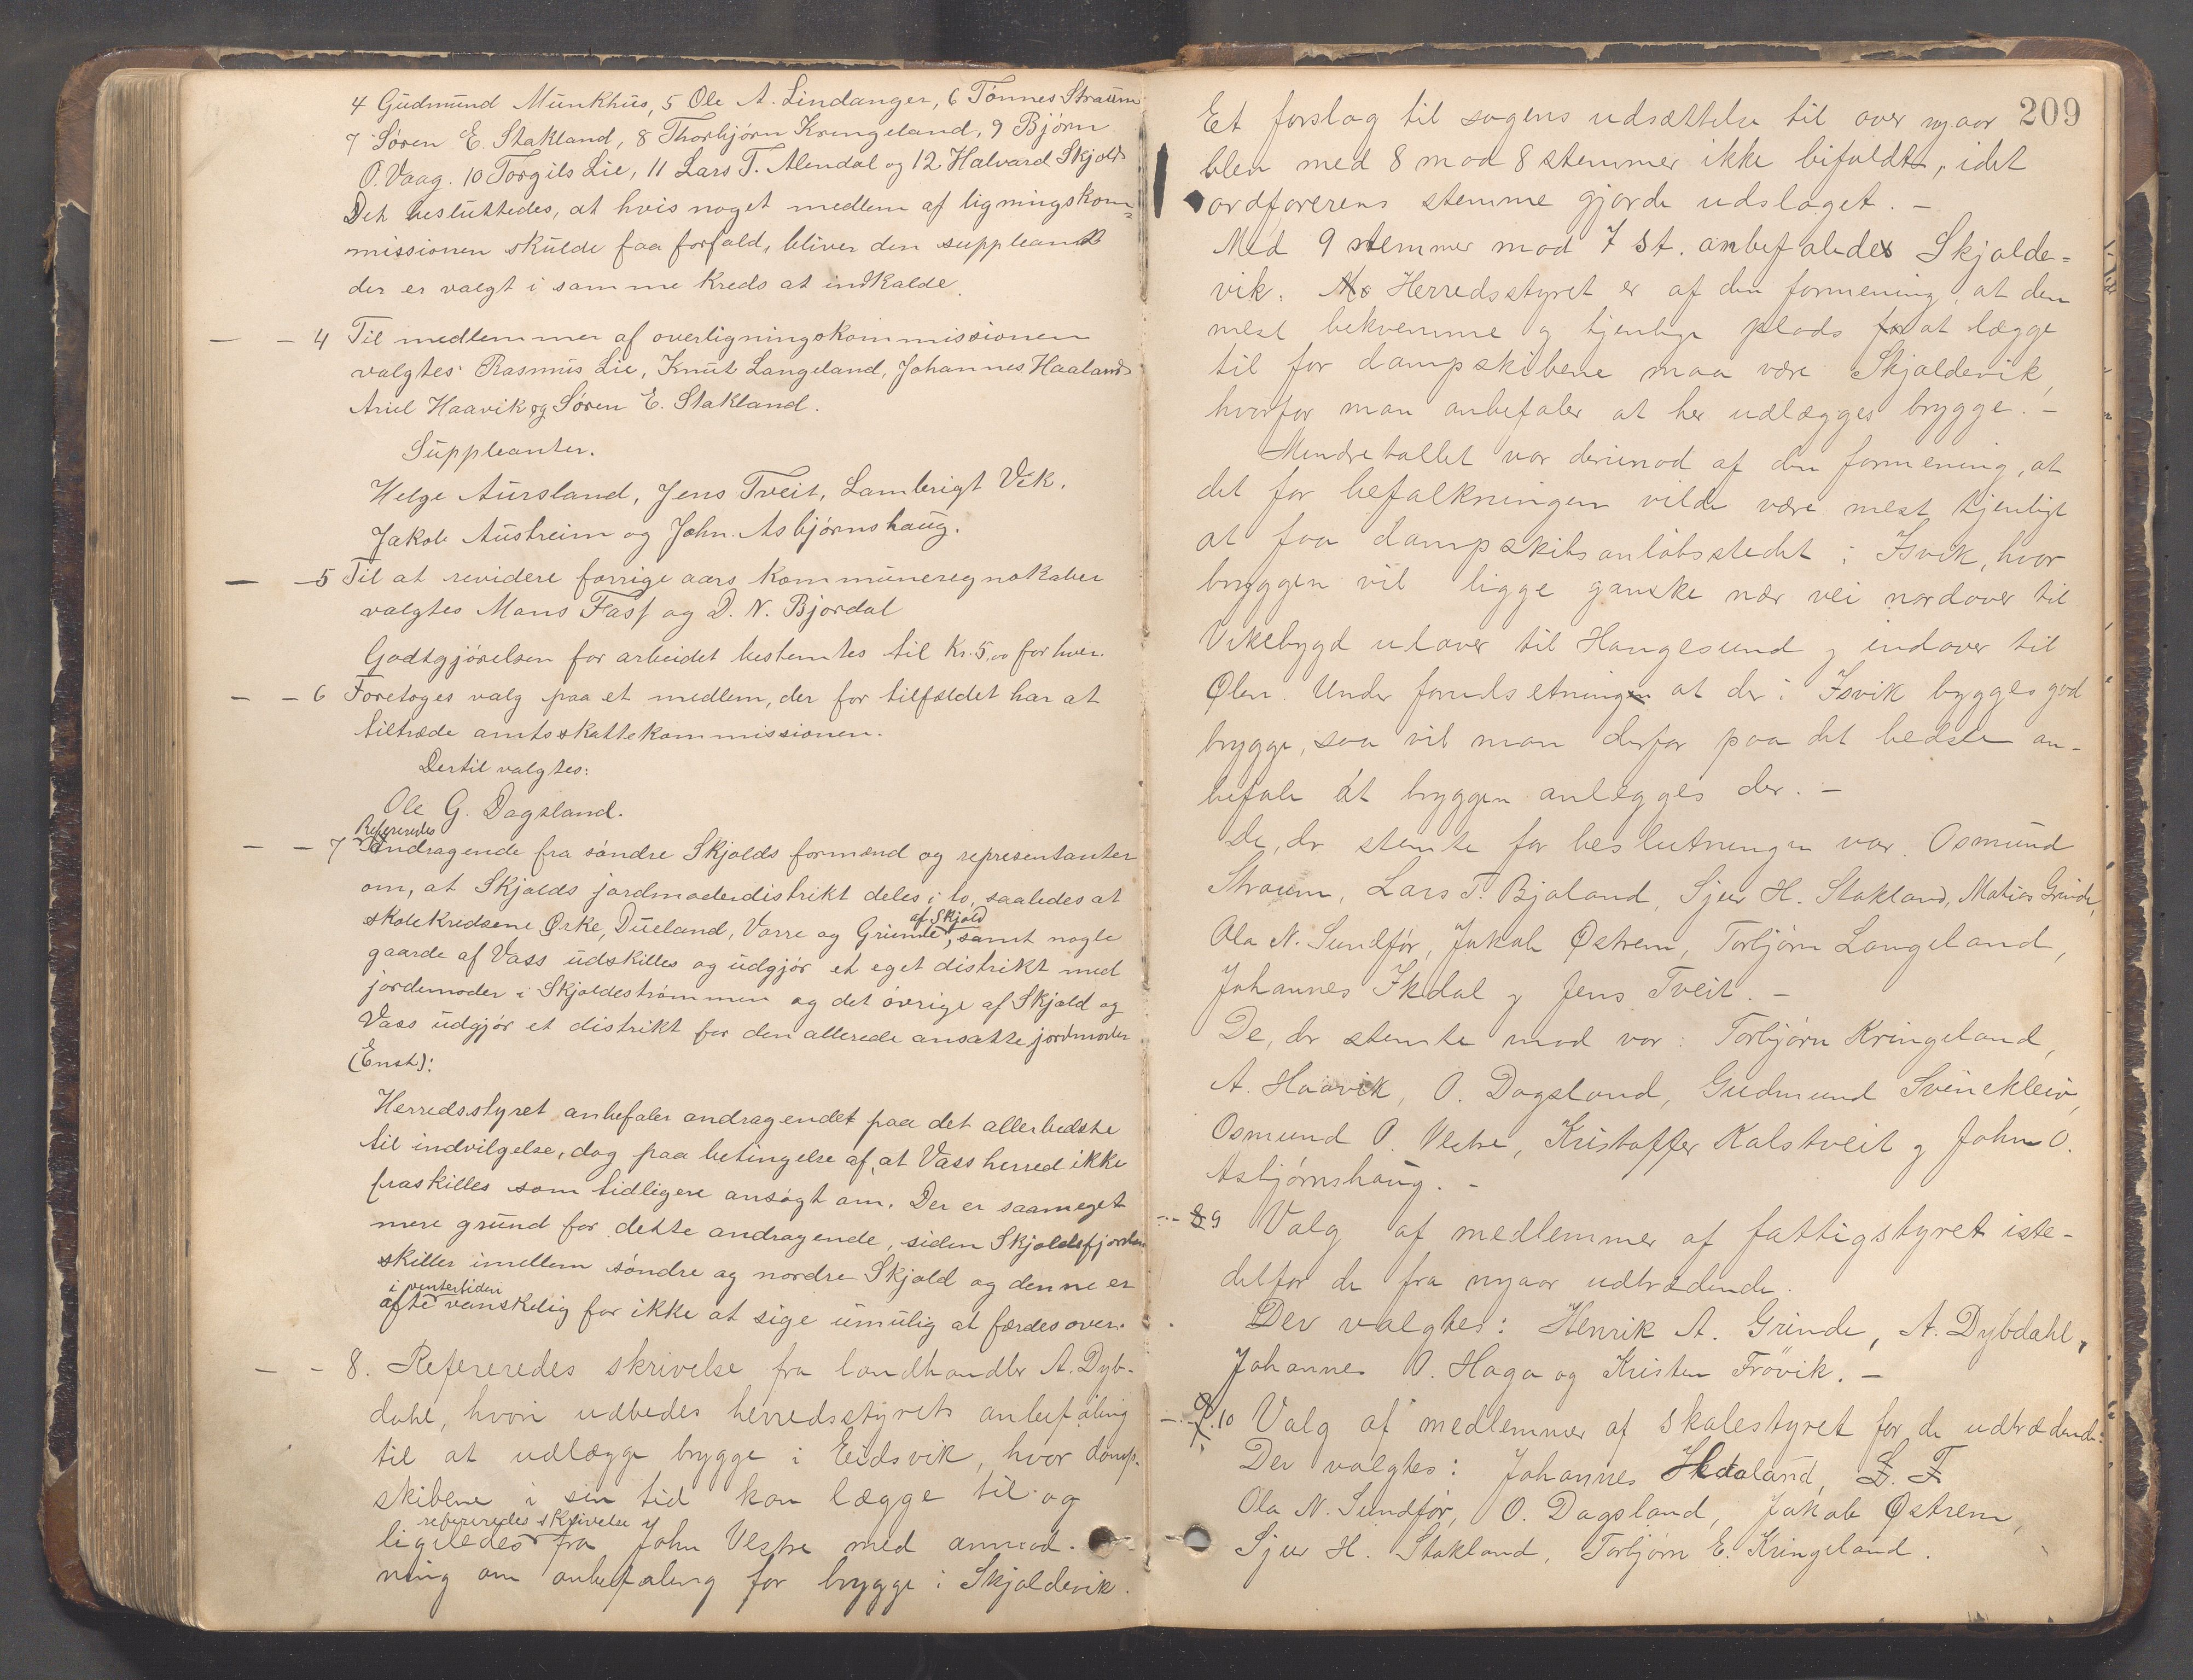 4 Gudmund Munkhus, 5 Ole A. Lindanger, 6 Tönnes Straum
7 Sören E. Stakland, 8 Thorbjörn Kringeland, 9 Björn
O. Vaag. 10 Torgils Lie, 11 Lars T. Alendal og 12 Halvard Skjold
Det besluttedes, at hvis noget medlem af ligningskom=
missionen skulde faa forfald, bliver den suppleant
der er valgt i samme kreds at indkalde.
— - 4 Til medlemmer af overligningskommissionen
valgtes: Rasmus Lie, Knut Langeland, Johannes Haaland
Ariel Haavik og Sören E. Stakland.
Suppleanter.
Helge Aursland, Jens Tveit, Lambrigt Vik.
Jakob Austreim og John Asbjörnshaug.
— - 5 Til at revidere forrige aars kommuneregnskaber
valgtes Mons Fasf og D. N. Bjordal
Godtgjörelsen for arbeidet bestemtes til Kr. 5,00 for hver.
— - 6 Foretoges valg paa et medlem, der for tilfældet har at
tiltræde amtsskattekommissionen.
Dertil valgtes:
Ole G. Dagsland.
Refereredes
— - 7 Andragende fra söndre Skjolds formænd og representanter
om, at Skjolds jordmoderdistrikt deles i to, saaledes at
af Skjold
skolekredsene Ørke, Dueland, Vorre og Grinde, samt nogle
gaarde af Vass udskilles og udgjör et eget distrikt med
jordemoder i Skjoldestrømmen og det övrige af Skjold og
Vass udgjör et distrikt for den allerede ansatte jordmoder
(Enst):
Herredsstyret anbefaler andragendet paa det allerbedste
til indvilgelse, dog paa betingelse af, at Vass herred ikke
fraskilles som tidligere ansögt om. Der er saameget
mere grund for dette andragende, siden Skjoldsfjorden
skiller imellem söndre og nordre Skjold og denne er
i ventertiden
ofte vanskelig for ikke at sige umulig at færdes over.
— - 8. Refereredes skrivelse fra landhandler A. Dyb-
dahl, hvori udbedes herredsstyrets anbefaling
til at udlægge brygge i Eidsvik, hvor damp-
skibene i sin tid kan lægge til og
refereredes skrivelse
ligeledes fra John Vestre med anmod-
ning om anbefaling for brygge i Skjoldevik.
209
Et forslag til sagens udsættelse til over nyaar
blev med 8 mod 8 stemmer ikke bifaldt, idet
ordførerens stemme gjorde udslaget. —
Med 9 stemmer mod 7 st. anbefaledes Skjolde=
vik. Herredsstyret er af den formening, at den
mest bekvemme og tjenlige plads for at lægge
til for dampskibene maa være Skjoldevik,
hvorfor man anbefaler at her udlægges brygge. —
Mindretallet var derimod af den formening, at
det for befolkningen vilde være mest tjenligt
at faa dampskibsanløbsstedet i Isvik, hvor
bryggen vil ligge ganske nær vei nordover til
Vikebygd utover til Haugesund og indover til
Ølen. Under forudsetning at der i Isvik bygges god
brygge, saa vil man derfor paa det bedste an-
befale at bryggen anlegges der. —
De, der stemte for beslutningen var. Osmund
Straum, Lars T. Bjoland, Sjur H. Stakland, Matias Grinde,
Ola N. Sundför, Jakob Østrem, Torbjørn Langeland,
Johannes Ikdal og Jens Tveit. —
De, der stemte mod var: Torbjørn Kringeland,
A. Haavik, O. Dagsland, Gudmund Svinekleiv,
Osmund O. Vestre, Kristoffer Kalstveit og John O.
Asbjørnshaug. —
--- 9 Valg af medlemmer af fattigstyret iste-
detfor de fra nyaar udtrædende.
Der valgtes: Henrik A. Grinde, A. Dybdahl,
Johannes O. Haga og Kristen Frövik. —
— 10 Valg af medlemmer af skolestyret for de udtrædende.
Der valgtes: Johannes Haaland, L. F
Ola N. Sundför, O. Dagsland, Jakob Østrem,
Sjur H. Stakland, Torbjørn E. Kringeland.